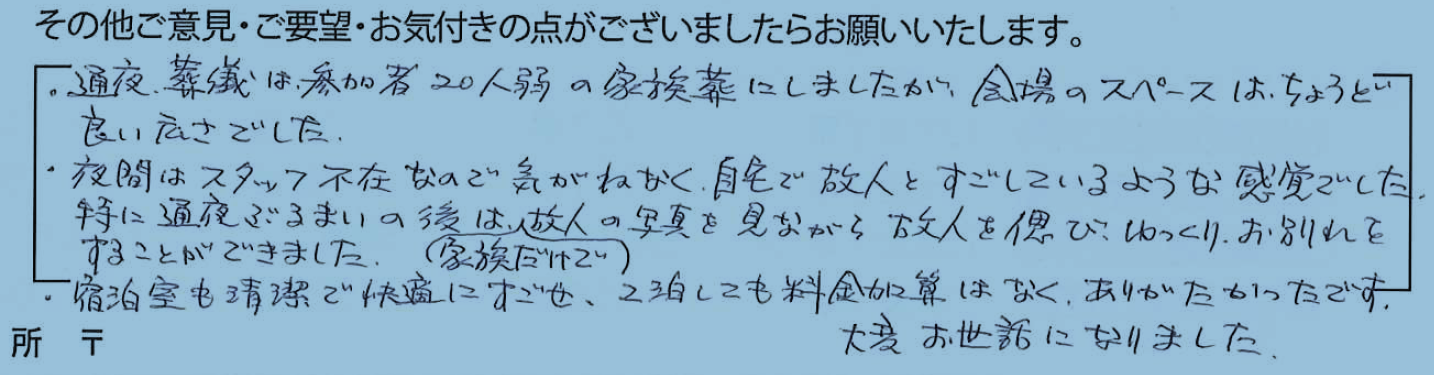 その他ご意見・ご要望・お気付きの点がございましたらお願いいたします。
・通夜、葬儀は、参加者20人弱の家族葬にしましたが、会場のスペースは、ちょうど
良い広さでした。
・夜間はスタッフ不在なので気がねなく、自宅で故人とすごしているような感覚でした。
特に通夜ぶるまいの後は、故人の写真を見ながら故人を偲び、ゆっくり、お別れを
することができました。(家族だけで)
・宿泊室も清潔で快適にすごせ、2泊しても料金加算はなく、ありがたかったです。
大変お世話になりました。
所 〒